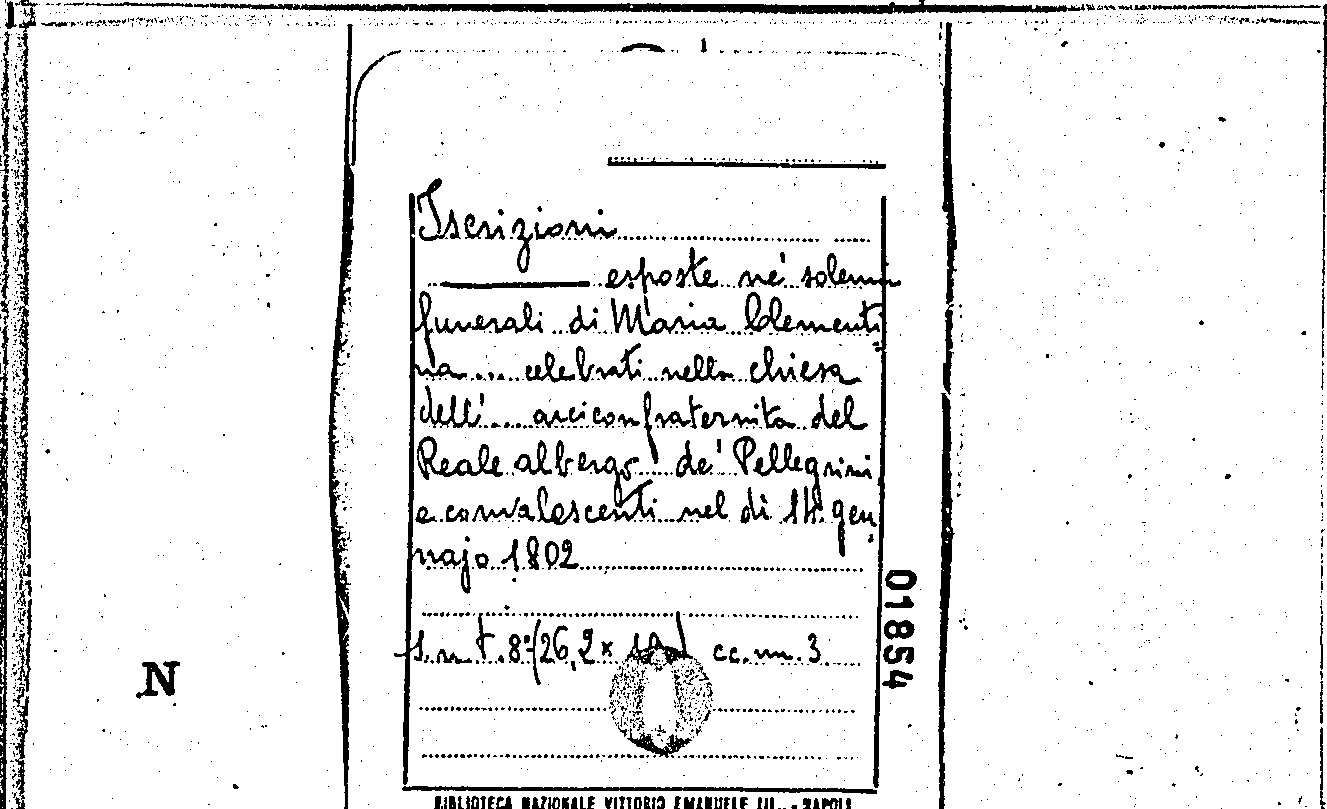 Iscrizioni
esposte ne' solenni
funerali di Maria Clementi
na ... celebrati nella chiesa
dell' ... arciconfraternita del
Reale albergo de' Pellegrini
e convalescenti nel dì 14 gen
najo 1802
s.n.t. 8° (26,2 x cc.nn. 3
01854
N
BIBLIOTECA NAZIONALE VITTORIO EMANUELE III. - NAPOLI